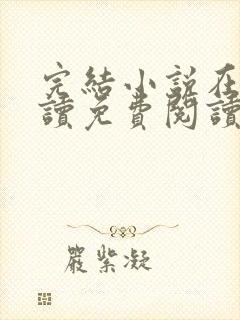 完結小說在
讀免費閱讀
嚴紫凝